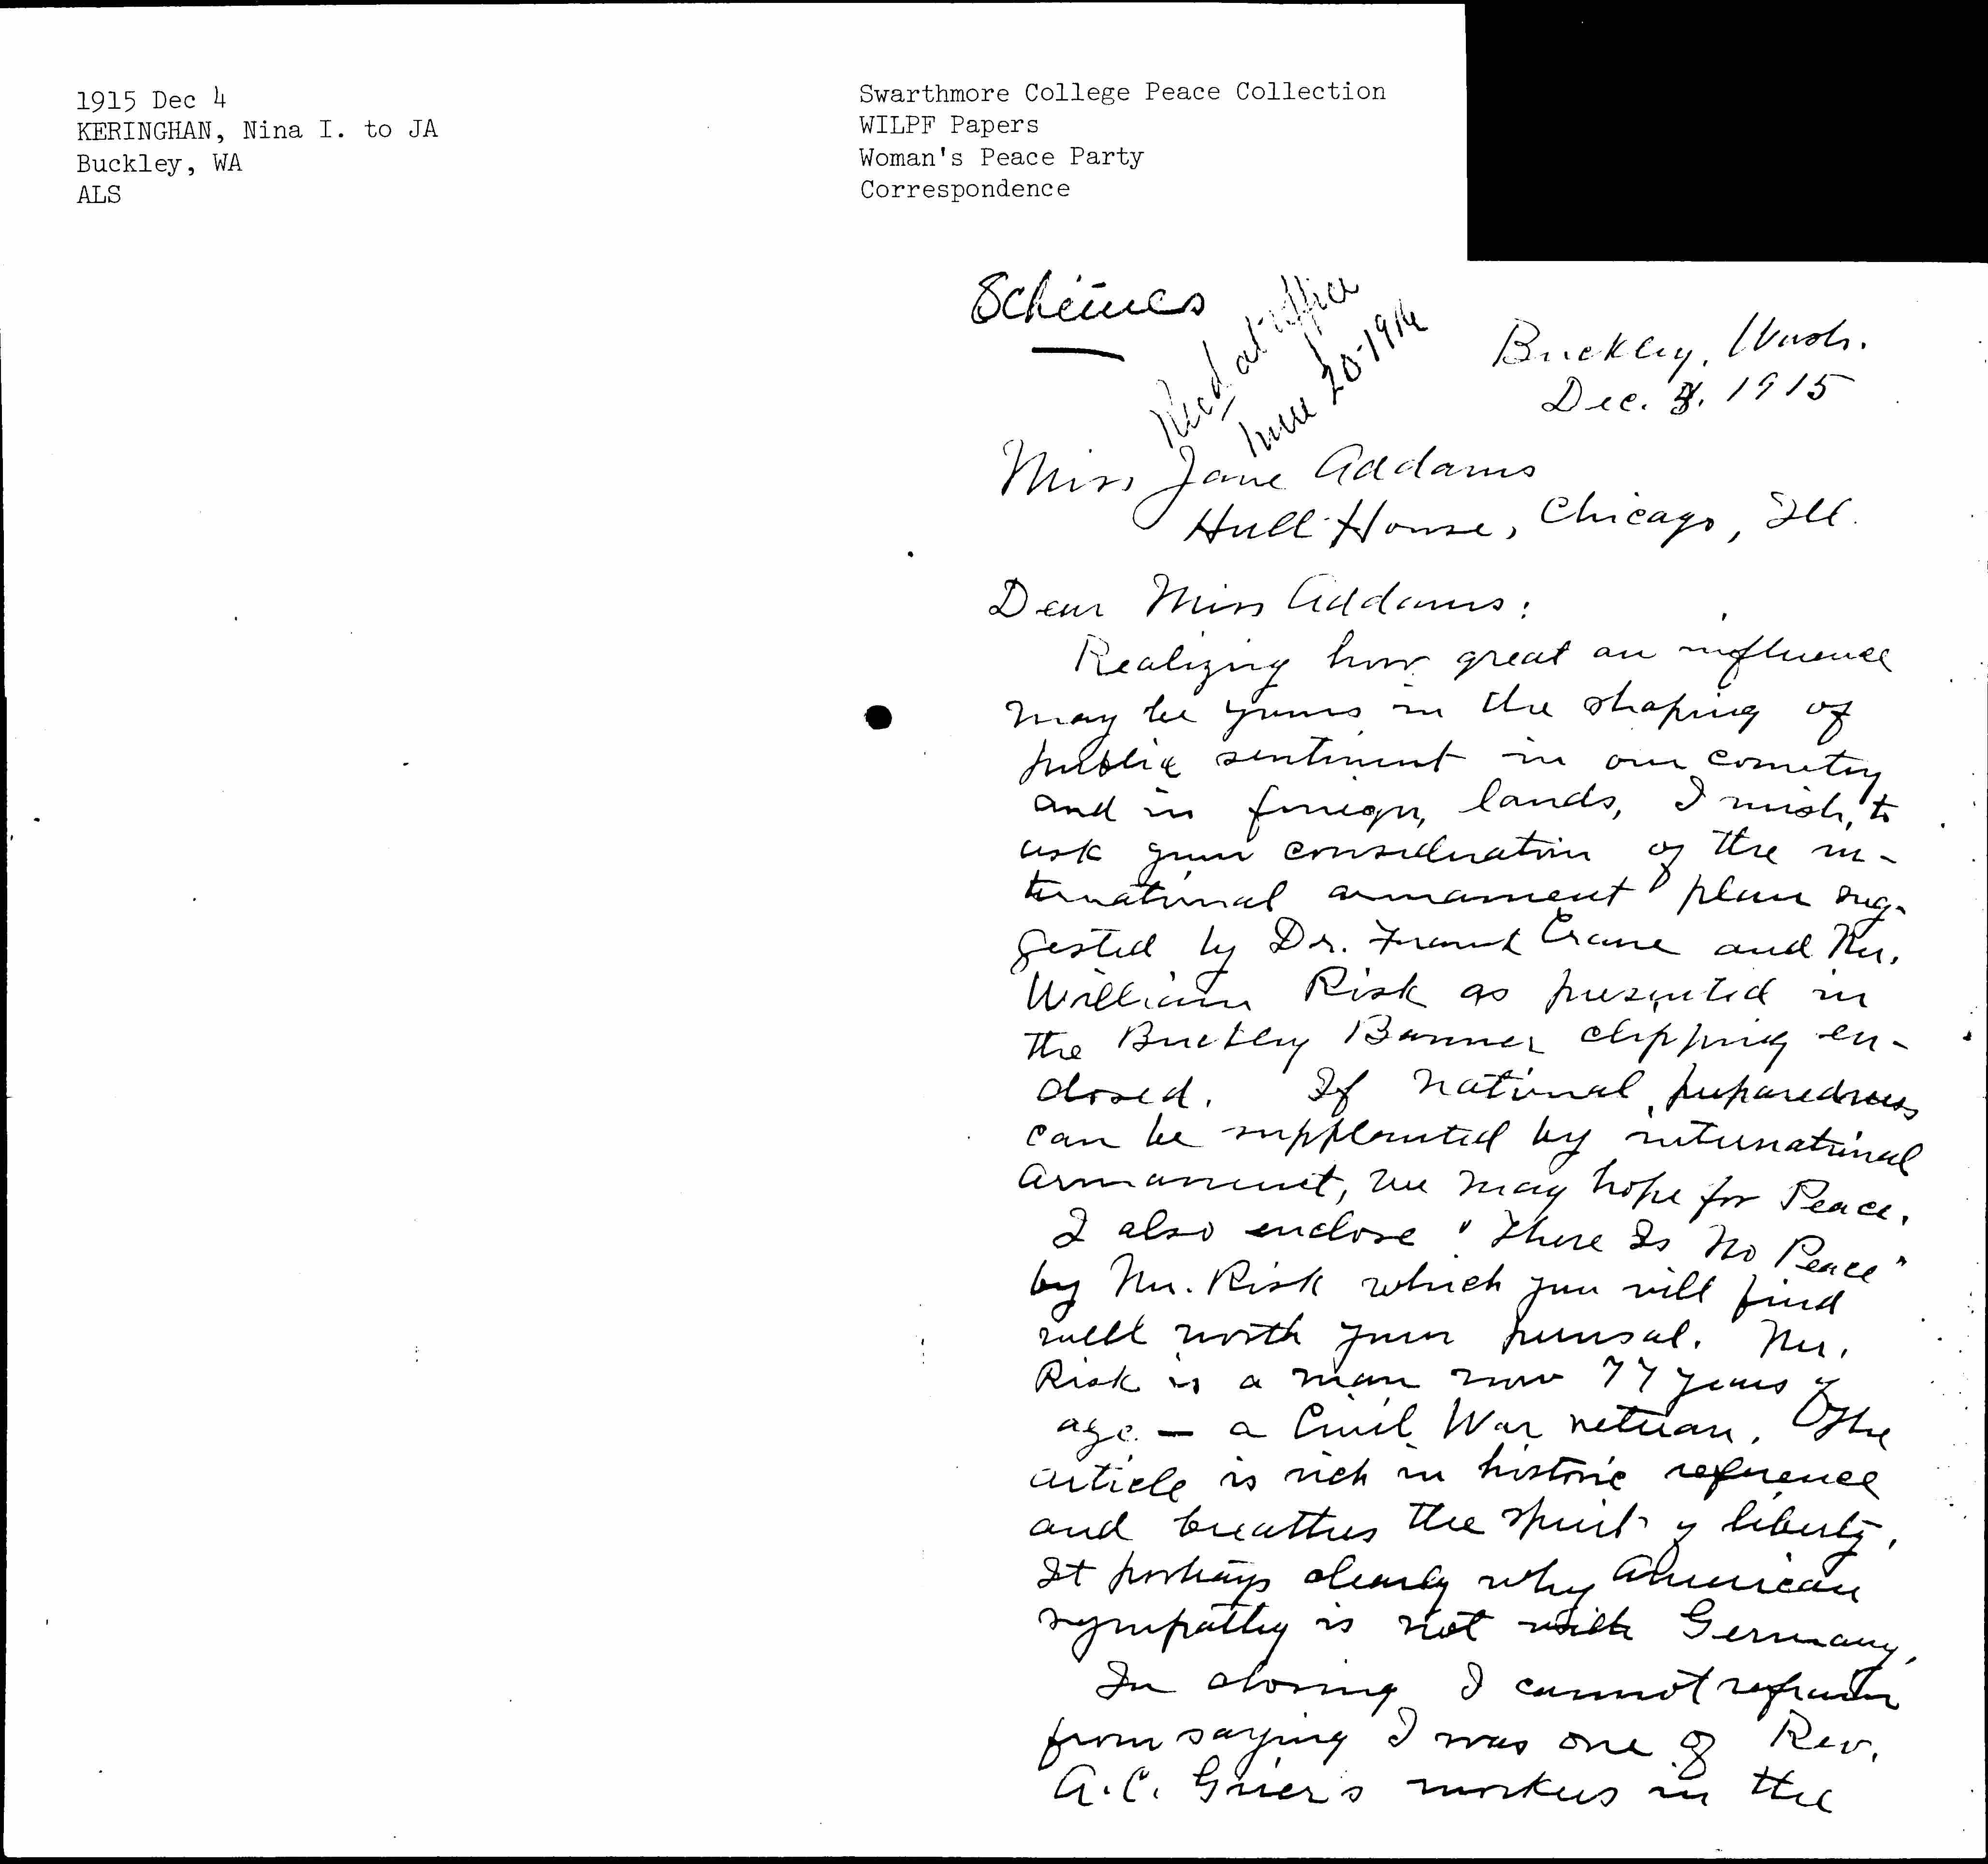 1915 Dec 4
KERINGHAN, Nina I. to JA
Buckley, WA
ALS
Swarthmore College Peace Collection
WILPF Papers
Woman's Peace Party
Correspondence
Schemes
Recd at office
June 20-1916
Buckley, Wash.
Dec. 4. 1915
Miss Jane Addams
Hull House, Chicago, Ill.
Dear Miss Addams:
Realizing how great an influence
may be yours in the shaping of
public sentiment in our country
and in foreign lands, I wish to
ask your consideration of the in-
ternational armament plan sug-
gested by Dr. Frank Crane and Mr.
William Risk as presented in
the Buckley Banner clipping en-
closed. If national preparedness
can be supplanted by international
armament, we may hope for Peace.
I also enclose "There Is No Peace"
by Mr. Risk which you will find
well worth your perusal. Mr.
Risk is a man now 77 years of
age - a Civil War veteran. The
article is rich in historic reference
and breathes the spirit of liberty.
It portrays clearly why American
sympathy is not with Germany.
In closing I cannot refrain
from saying I was one of Rev.
A.C. Grier's workers in the